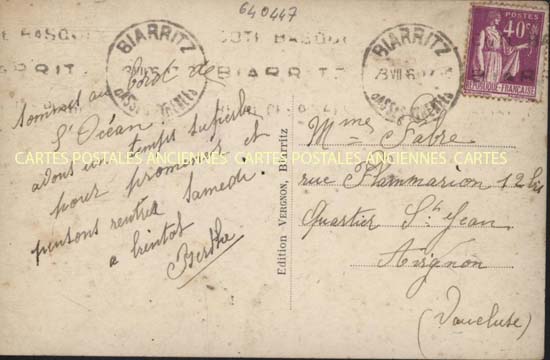 640447
CÔTE BASQUE
BIARRITZ
BIARRITZ
BASSES PYRÉNÉES
BIARRITZ
BASSES PYRÉNÉES
POSTES
40c
RÉPUBLIQUE FRANÇAISE
Sommes au bord de
l'Océan.
avons un temps superbe
pour promener et
pensons rentrer Samedi.
a bientot
Berthe
Edition VERGNON, Biarritz
Mme Fabre
rue Flammarion 12 bis
Quartier St Jean
Avignon
(Vaucluse)
CARTES POSTALES ANCIENNES CARTES POSTALES ANCIENNES CARTES POSTALES ANCIENNES